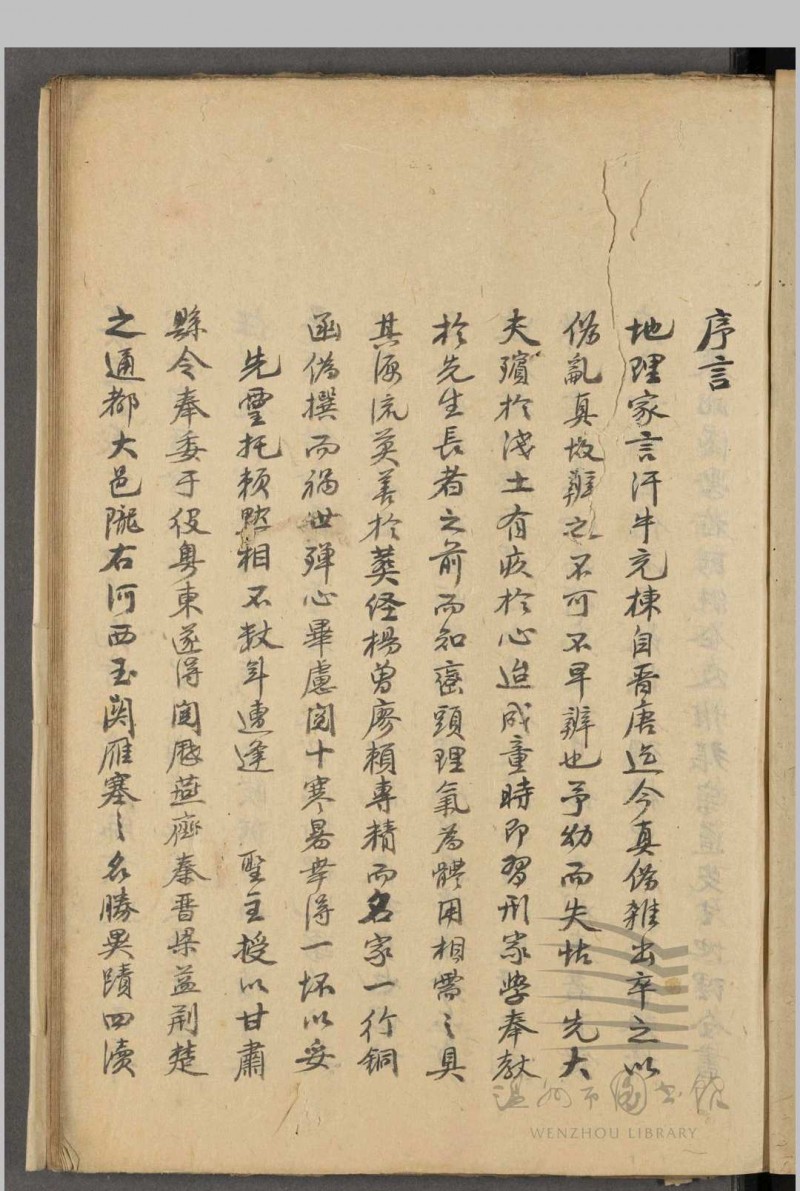 序言
地理家言汗牛充棟自晋唐迄今真偽雜出卒之以
偽亂真故辨之不可不早辨也予幼而失怙 先大
夫殯於淺土有疚於心迨成童時即習形家學奉教
於先生長者之前而知巒頭理氣為體用相需之具
其源流莫善於葬经楊曾廖賴專精而名家一行銅
函偽撰而禍世殫心畢慮閱十寒暑幸得一坏以妥
先靈托賴黙相不数年遭逢 聖主授以甘肅
縣令奉委于役粤東遂得閱歷燕齊秦晋梁益荊楚
之通都大邑隴右河西玉関雁塞之名勝異蹟四瀆
温州市图书馆
WENZHOU LIBRARY